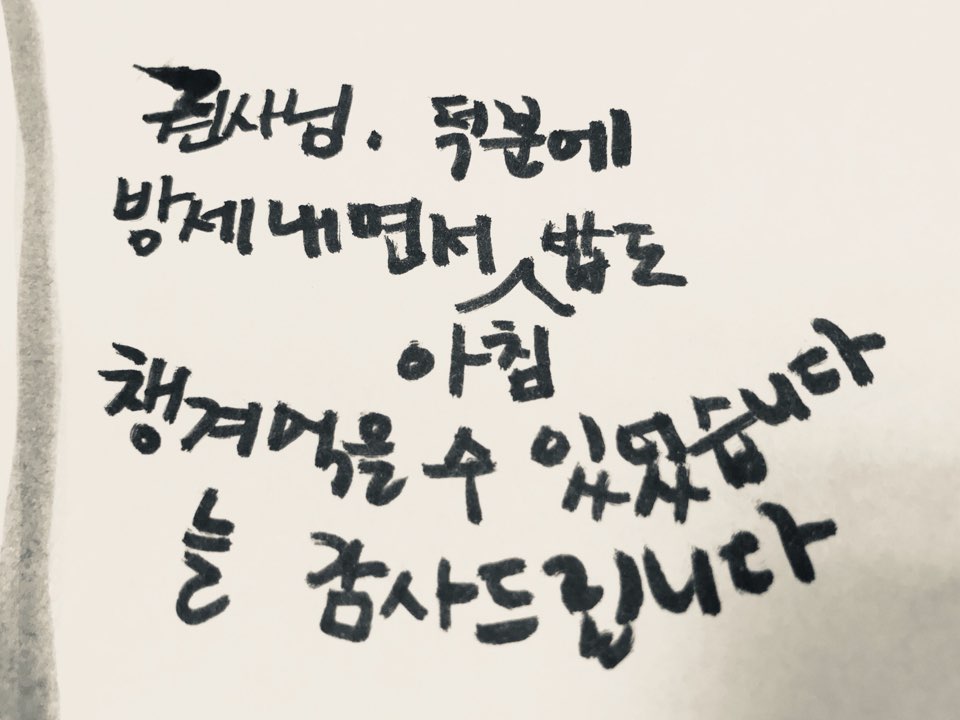 권사님. 덕분에
방제내면서 밥도
아침
챙겨먹을 수 있었습니다
늘 감사드립니다